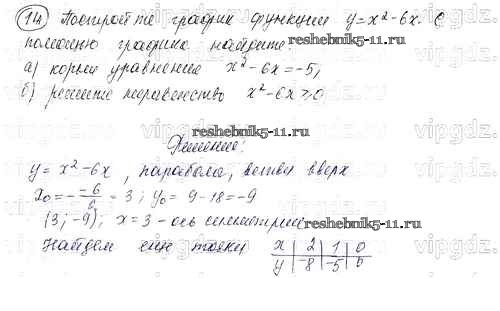 14 Постройте график функции y=x²-6x. С
помощью графика найдите:
reshebnik5-11.ru
а) корни уравнения x²-6x=-5;
б) решите неравенство x²-6x≥0
reshebnik5-11.ru
Решение:
y = x²-6x, парабола, ветви вверх
x₀=-\frac{-6}{2}=3; y₀= 9-18=-9
(3;-9); x=3-ось симметрии
reshebnik5-11.ru
Найдем еще точки x 2 1 0
y -8 -5 0